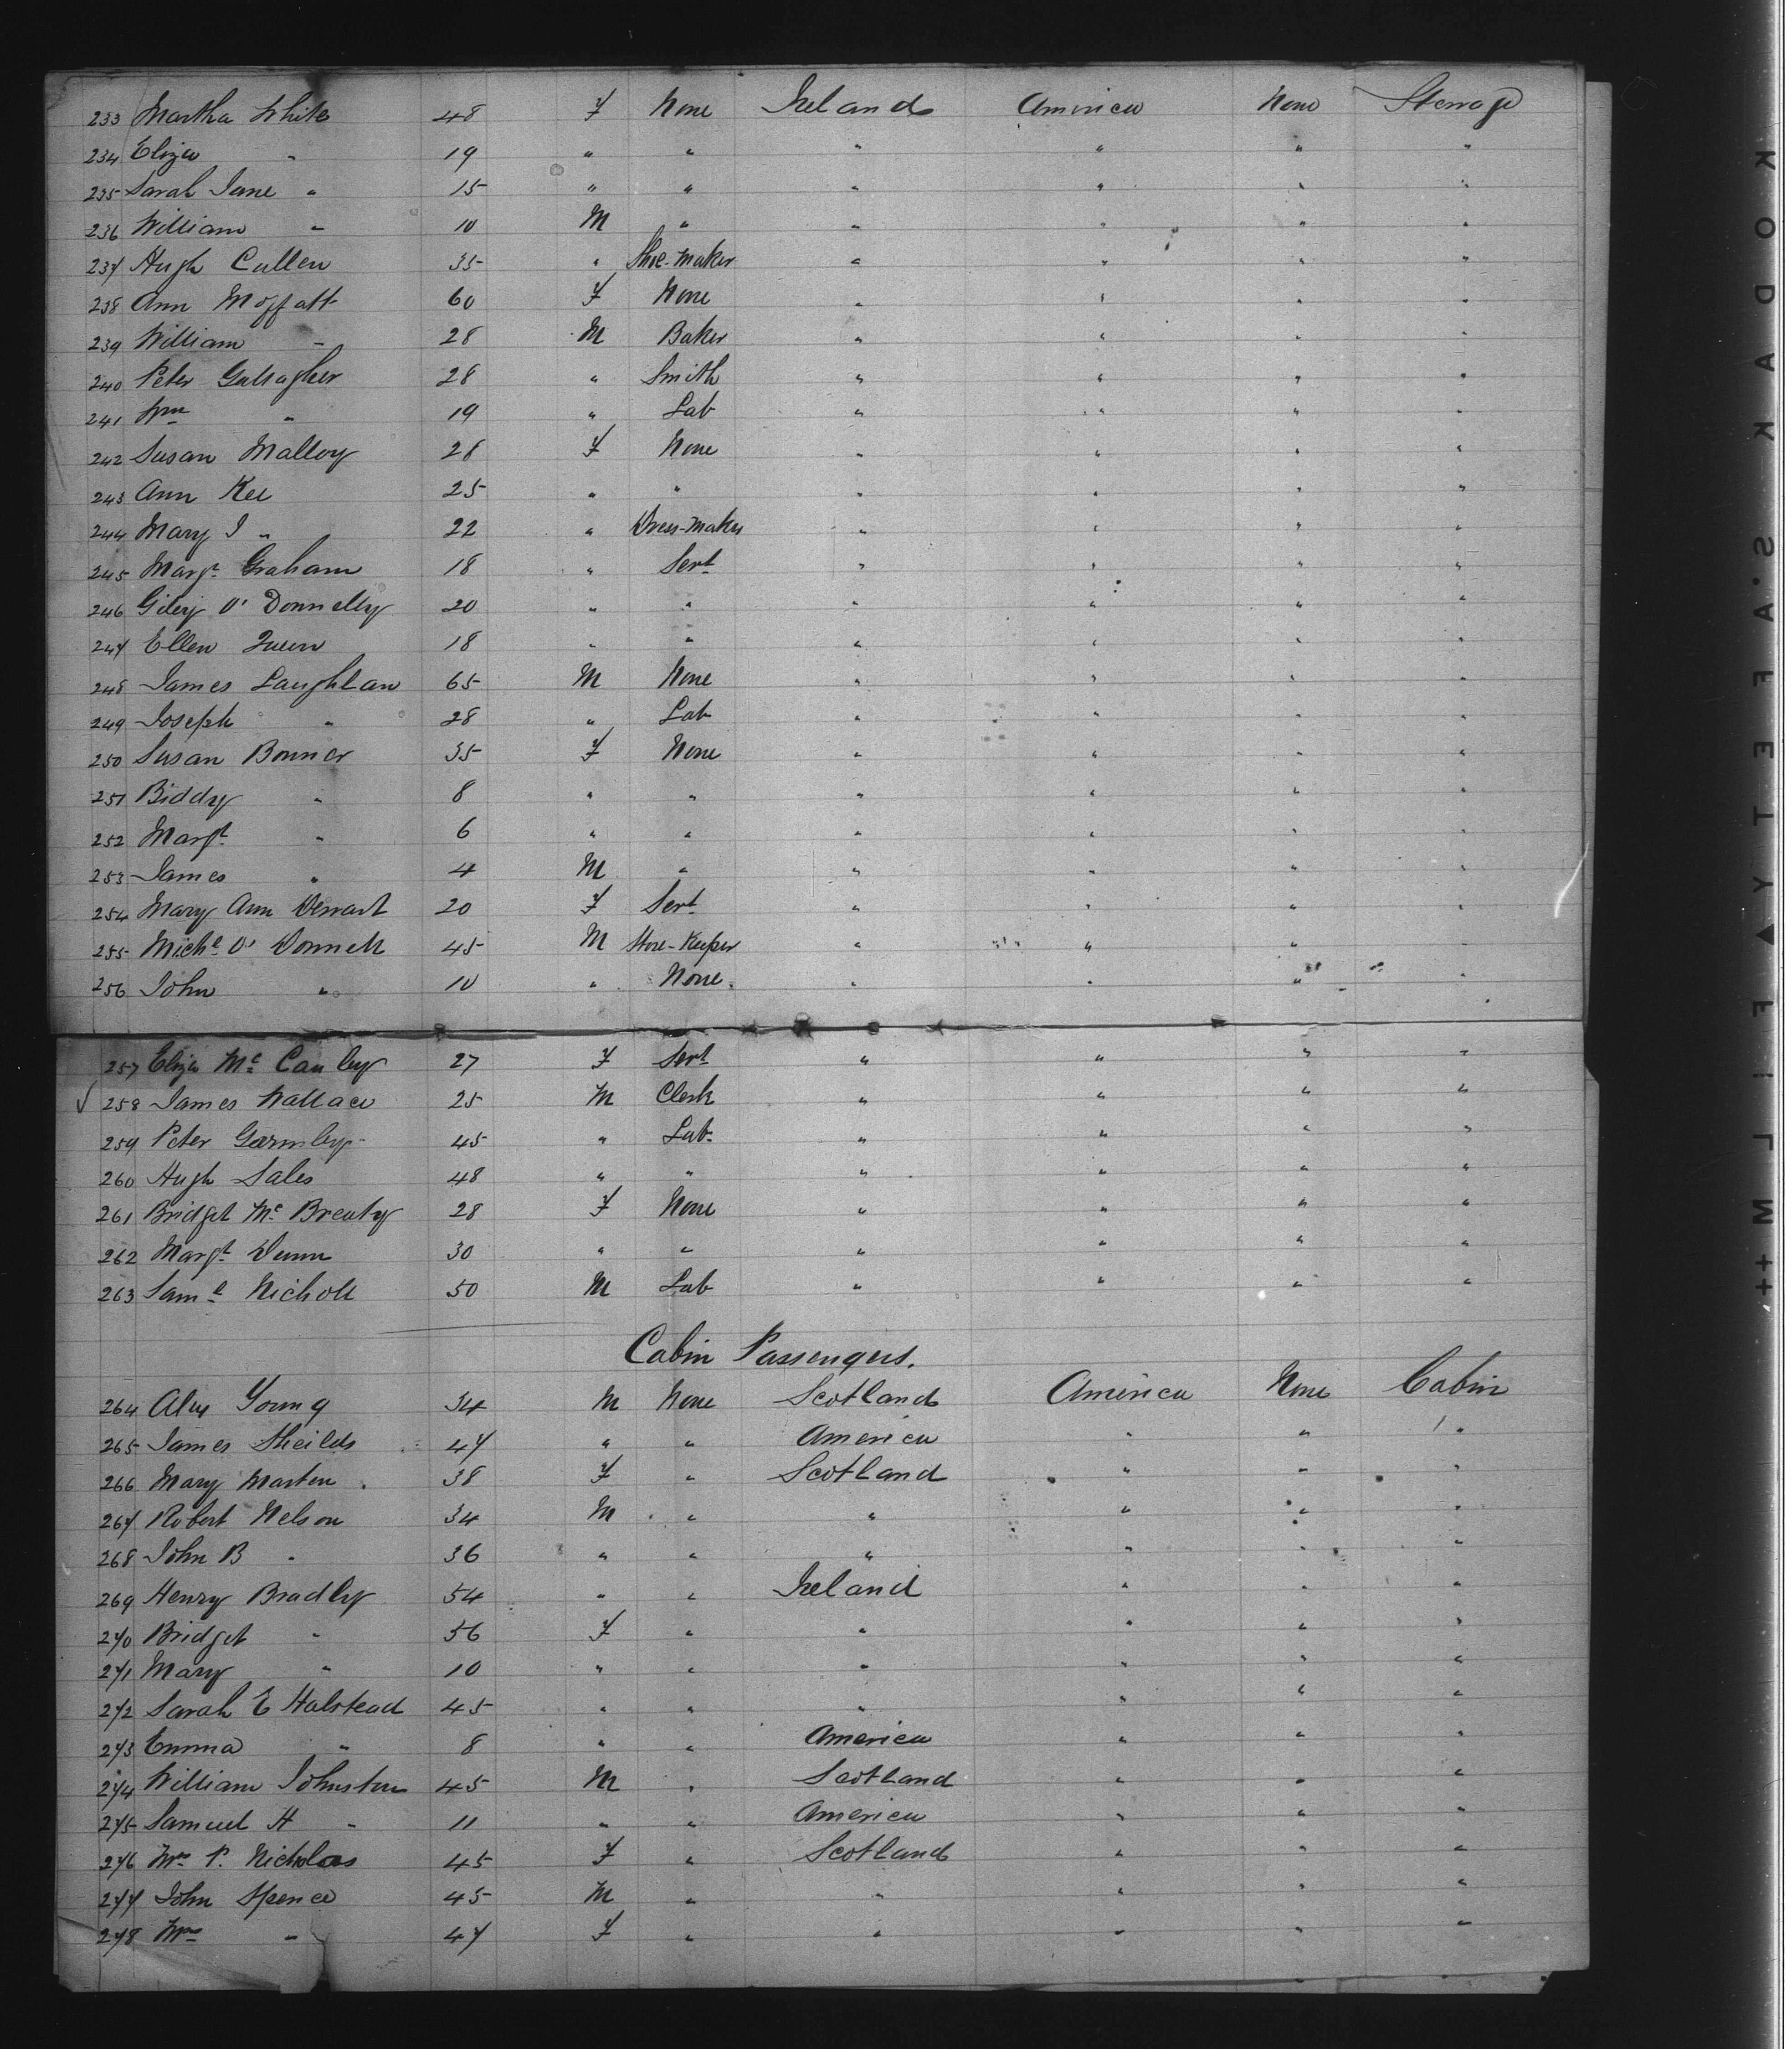 233 Martha White 48 F None Ireland America None Steerage
234 Eliza " 19 " " " " " "
235 Sarah Jane " 15 " " " " " "
236 William " 10 M " " " " "
237 Hugh Cullen 35 " Shoe-Maker " " " "
238 Ann Moffatt 60 F None " " " "
239 William " 28 M Baker " " " "
240 Peter Gallagher 28 " Smith " " " "
241 Wm " 19 " Lab " " " "
242 Susan Malloy 28 F None " " " "
243 Ann Kee 25 " " " " " "
244 Mary J " 22 " Dress-Maker " " " "
245 Margt Graham 18 " Sert " " " "
246 O'Donnelly 20 " " " " " "
247 Ellen Quinn 18 " " " " " "
248 James Laughlan 65 M None " " " "
249 Joseph " 28 " Lab " " " "
250 Susan Bonner 35 F None " " " "
251 Biddy " 8 " " " " " "
252 Margt " 6 " " " " " "
253 James " 4 M " " " " "
254 Mary Ann 20 F Sert " " " "
255 Michl O'Donnell 45 M Store-Keeper " " " "
256 John " 10 " None. " " " "
257 Eliza Mc Cauley 27 F Sert " " " "
258 James Wallace 25 M Clerk " " " "
259 Peter Gormley 45 " Lab. " " " "
260 Hugh Sales 48 " " " " " "
261 Bridget Mc Brearty 28 F None " " " "
262 Margt Dunn 30 " " " " " "
263 Saml Nicholl 50 M Lab " " " "
Cabin Passengers.
264 Alex Young 34 M None Scotland America None Cabin
265 James Sheilds 47 " " America " " "
266 Mary Marten 38 F " Scotland " " "
267 Robert Nelson 34 M " " " " "
268 John B " 36 " " " " " "
269 Henry Bradley 54 " " Ireland " " "
270 Bridget " 56 F " " " " "
271 Mary " 10 " " " " " "
272 Sarah E Halstead 45 " " " " " "
273 Emma " 8 " " America " " "
274 William Johnston 45 M " Scotland " " "
275 Samuel H " 11 " " America " " "
276 Mrs P. Nicholas 45 F " Scotland " " "
277 John Spence 45 M " " " " "
278 Mrs " 47 F " " " " "
KODAK S.A.F.E.T.Y FILM ++